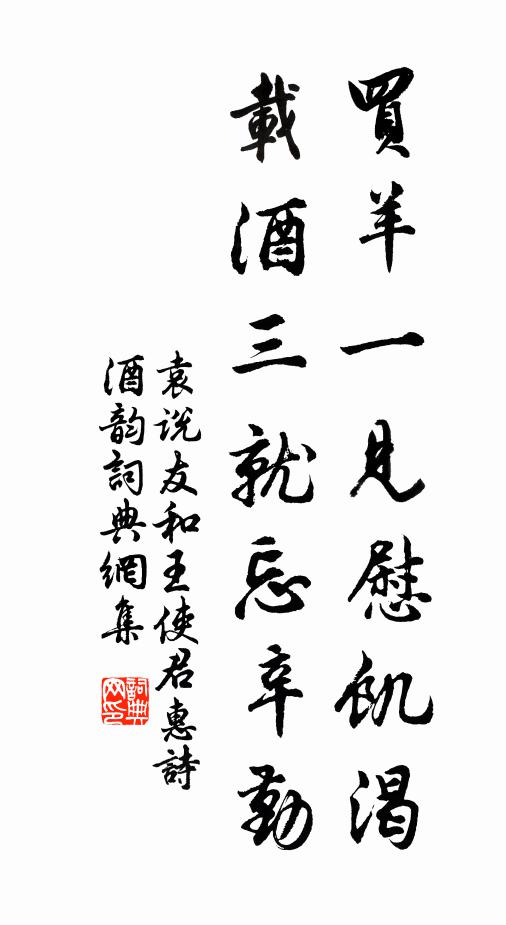 買羊一見慰飢渴
載酒三就忘辛勤
袁说友和王使君惠詩
酒韵詞典網集
詞典网印